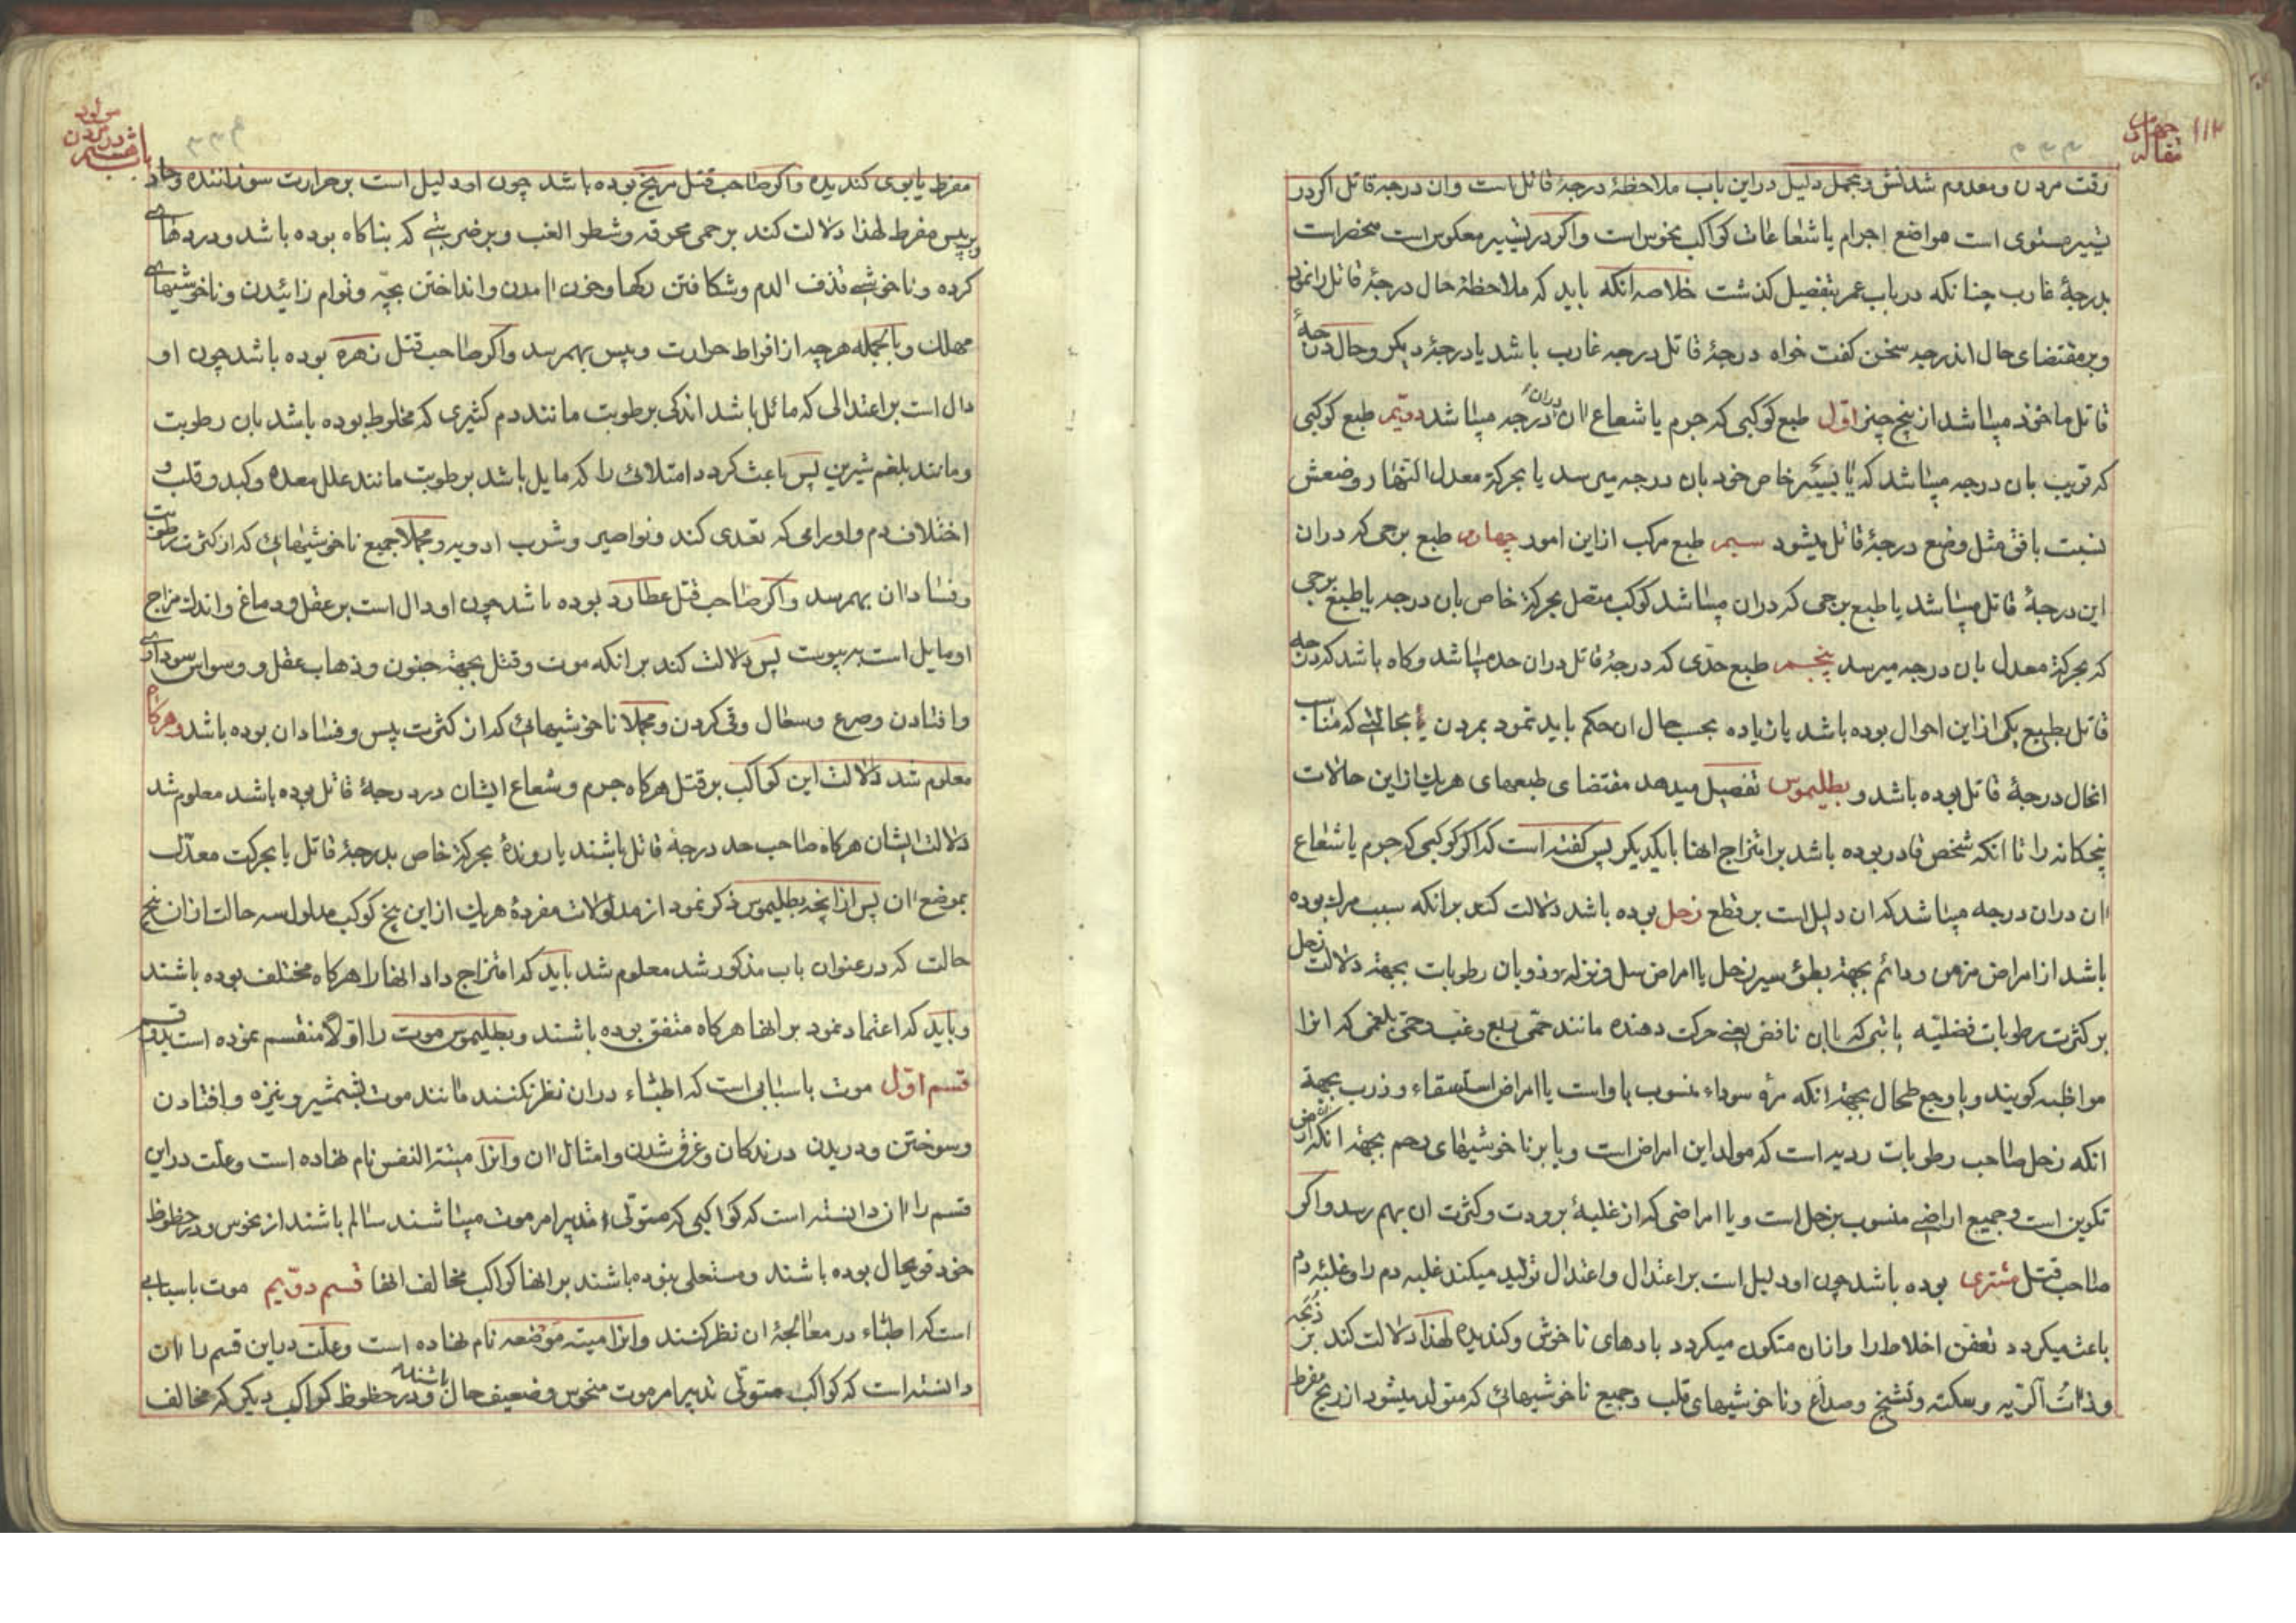 ۱۱۳
مقاله چهارم
وقت مردن و معدوم شدنش و مجمل دلیل در این باب ملاحظهٔ درجهٔ قاتل است و ان درجهٔ قاتل اکر در
تسییر مستوی است مواضع اجرام یا شعاعات کواکب نحوس است و اکر در تسییر معکوس است منحصر است
بدرجهٔ غارب چنانکه در باب عمر بتفصیل کذشت خلاصه انکه باید که ملاحظهٔ حال درجهٔ قاتل را نمود
و بر مقتضای حال اندرجه سخن کفت خواه درجهٔ قاتل درجه غارب باشد یا درجهٔ دیکر و حال درجهٔ
قاتل ماخوذ میباشد از پنج چیز اول طبع کوکبی که جرم یا شعاع ان دران درجه میباشد دویم طبع کوکبی
که قریب بان درجه میباشد که یا بسیر خاص خود بان درجه میرسد یا بحرکة معدل النهار و وضعش
نسبت بافق مثل وضع درجهٔ قاتل میشود سیم طبع مرکب از این امور چهارم طبع برجی که دران
این درجهٔ قاتل میباشد یا طبع برجی که دران میباشد کوکب متصل بحرکة خاص بان درجه یا طبع برجی
که بحرکة معدل بان درجه میرسد پنجم طبع حدی که درجهٔ قاتل دران حد میباشد و کاه باشد که درجه
قاتل بطبع یکی از این احوال بوده باشد یا زیاده بحسب حال ان حکم باید نمود بمردن یا بحالتی که مناسب
انحال درجهٔ قاتل بوده باشد و بطلیموس تفصیل میدهد مقتضای طبعهای هریک از این حالات
پنجکانه را تا انکه شخص قادر بوده باشد بر امتزاج انها بایکدیکر پس کفته است که اکر کوکبی که جرم یا شعاع
ان دران درجه میباشد که ان دلیل است بر قطع زحل بوده باشد دلالت کند برانکه سبب مرک بوده
باشد از امراض مزمن و دائم بجهة بطؤ سیر زحل یا امراض سل و نزله و ذوبان رطوبات بجهة دلالت زحل
بر کثرت رطوبات فضلیه یا تبی که با ان نافض یعنی حرکت دهنده مانند حمی ربع و غب و حمی بلغمی که انرا
مواظبه کویند و یا وجع طحال بجهة انکه مرهٔ سوداء منسوب باو است یا امراض استسقاء و ذرب بجهة
انکه زحل صاحب رطوبات ردیه است که مولد این امراض است و یا بر ناخوشیهای رحم بجهة انکه ارض
تکوین است و جمیع اراضی منسوب بزحل است و یا امراضی که از غلبهٔ برودت و کثرت ان بهم رسد و اکر
صاحب قتل مشتری بوده باشد چون او دلیل است بر اعتدال و اعتدال تولید میکند غلبه دم را و غلبهٔ دم
باعث میکردد تعفن اخلاط را و ازان متکون میکردد بادهای ناخوش و کندیده لهذا دلالت کند بر ذبحه
و ذات الریه و سکته و تشنج و صداع و ناخوشیهای قلب و جمیع ناخوشیهائی که متولد میشود از ریح مفرط
باب هشتم
در مردن
مولود
مفرط یا بوی کندیده و اکر صاحب قتل مریخ بوده باشد چون او دلیل است بر حرارت سوزاننده و حاد
و یبس مفرط لهذا دلالت کند بر حمی محرقه و شطر الغب و بر ضربتی که بناکاه بوده باشد و دردهای
کرده و ناخوشی قذف الدم و شکافتن رکها و خون امدن و انداختن بچه و توام زائیدن و ناخوشیهای
مهلک و بالجمله هرچه از افراط حرارت و یبس بهمرسد و اکر صاحب قتل زهره بوده باشد چون او
دال است بر اعتدالی که مائل باشد اندکی برطوبت مانند دم کثیری که مخلوط بوده باشد بان رطوبت
و مانند بلغم شیرین پس باعث کردد امتلائی را که مایل باشد برطوبت مانند علل معده و کبد و قلب و
اختلاف دم و اورامی که تعدی کند و نواصیر و شرب ادویه و مجملا جمیع ناخوشیهائی که از کثرت رطوبت
و فساد ان بهمرسد و اکر صاحب قتل عطارد بوده باشد چون او دال است بر عقل و دماغ و اندک مزاج
او مایل است به یبوست پس دلالت کند برانکه موت و قتل بجهة جنون و ذهاب عقل و وسواس سوداوی
و افتادن و صرع و سعال و قی کردن و مجملا ناخوشیهائی که از کثرت یبس و فساد ان بوده باشد و هرکاه
معلوم شد دلالت این کواکب بر قتل هرکاه جرم و شعاع ایشان در درجهٔ قاتل بوده باشد معلوم شد
دلالت ایشان هرکاه صاحب حد درجهٔ قاتل باشند یا روندهٔ بحرکة خاص بدرجهٔ قاتل یا بحرکت معدل
بموضع ان پس از انچه بطلیموس ذکر نمود از مدلولات مفردهٔ هریک از این پنج کوکب مدلول سه حالت ازان پنج
حالت که در عنوان باب مذکور شد معلوم شد باید که امتزاج داد انها را هرکاه مختلف بوده باشند
و باید که اعتماد نمود بر انها هرکاه متفق بوده باشند و بطلیموس موت را اولا منقسم نموده است بدو قسم
قسم اول موت باسبابی است که اطباء دران نظر نکنند مانند موت بشمشیر و نیزه و افتادن
و سوختن و دریدن درندکان و غرق شدن و امثال ان و انرا میتة النفس نام نهاده است و علت در این
قسم را ان دانسته است که کواکبی که متولی تدبیر امر موت میباشند سالم باشند از نحوس و در حظوظ
خود قویحال بوده باشند و مستعلی نبوده باشند بر انها کواکب مخالف انها قسم دویم موت باسبابی
است که اطباء در معالجهٔ ان نظر کنند و انرا میته موضعه نام نهاده است و علت در این قسم را ان
دانسته است که کواکب متولی تدبیر امر موت منحوس و ضعیف حال باشند و در حظوظ کواکب دیکر که مخالف